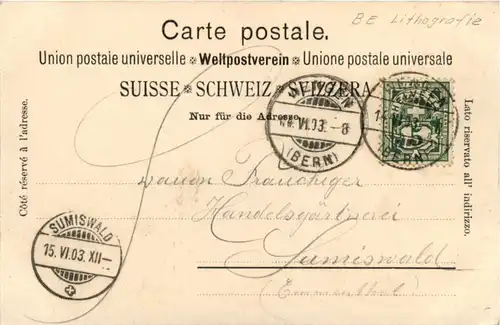 BE Lithografie
Carte postale.
Union postale universelle * Weltpostverein * Unione postale universale
SUISSE * SCHWEIZ * SVIZZERA
Nur für die Adresse
Côté réservé à l'adresse.
Lato riservato all' indirizzo.
(BERN)
14. VI. 03.
(BERN)
SUMISWALD
15. VI. 03. XII–
Handelsgärtnerei
Sumiswald
(Emmenthal)